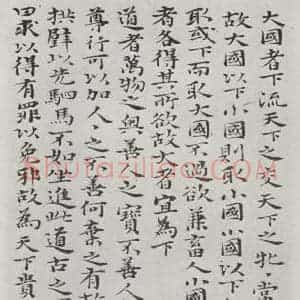 大國者下流天下之交天下之牝常
故大國以下小國則取小國小國以下
取或下而取大國不過欲兼畜人小國
者各得其所欲故大者宜為下
道者萬物之奥善人之寶不善人
尊行可以加人〻之不善何棄之有故
拱璧以先駟馬不如坐進此道古之
曰求以得有罪以免耶故為天下貴
Shufaziliao.COM